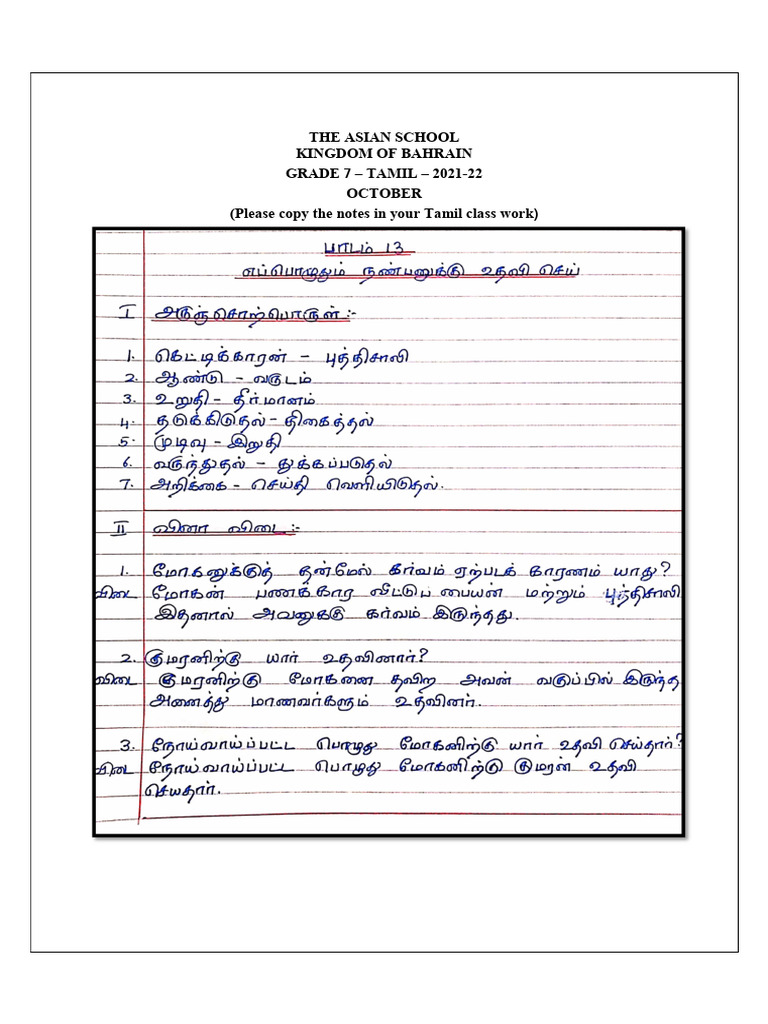 THE ASIAN SCHOOL
KINGDOM OF BAHRAIN
GRADE 7 – TAMIL – 2021-22
OCTOBER
(Please copy the notes in your Tamil class work)
பாடம் 13
எப்பொழுதும் நண்பனுக்கு உதவி செய்
I அருஞ்சொற்பொருள் :-
1. கெட்டிக்காரன் - புத்திசாலி
2. ஆண்டு - வருடம்
3. உறுதி - தீர்மானம்
4. தடுக்கிடுதல் - திகைத்தல்
5. முடிவு - இறுதி
6. வருந்துதல் - துக்கப்படுதல்
7. அறிக்கை - செய்தி வெளியிடுதல்.
II வினா விடை :-
1. மோகனுக்குத் தன்மேல் கர்வம் ஏற்படக் காரணம் யாது?
விடை மோகன் பணக்கார வீட்டுப் பையன் மற்றும் புத்திசாலி
இதனால் அவனுக்கு கர்வம் இருந்தது.
2. குமரனிற்கு யார் உதவினார்?
விடை குமரனிற்கு மோகனை தவிற அவன் வகுப்பில் இருந்த
அனைத்து மாணவர்களும் உதவினர்.
3. நோய்வாய்ப்பட்ட பொழுது மோகனிற்கு யார் உதவி செய்தார்?
விடை நோய்வாய்ப்பட்ட பொழுது மோகனிற்கு குமரன் உதவி
செய்தார்.